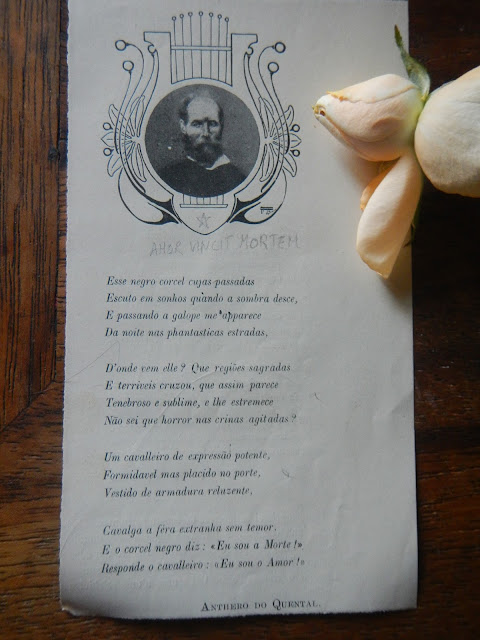 AMOR VINCIT MORTEM
Esse negro corcel cujas passadas
Escuto em sonhos quando a sombra desce,
E passando a galope me apparece
Da noite nas phantasticas estradas,
D'onde vem elle? Que regiões sagradas
E terriveis cruzou, que assim parece
Tenebroso e sublime, e lhe estremece
Não sei que horror nas crinas agitadas?
Um cavalleiro de expressão potente,
Formidavel mas placido no porte,
Vestido de armadura reluzente,
Cavalga a féra extranha sem temor.
E o corcel negro diz: «Eu sou a Morte!»
Responde o cavalleiro: «Eu sou o Amor!»
ANTHERO DO QUENTAL.